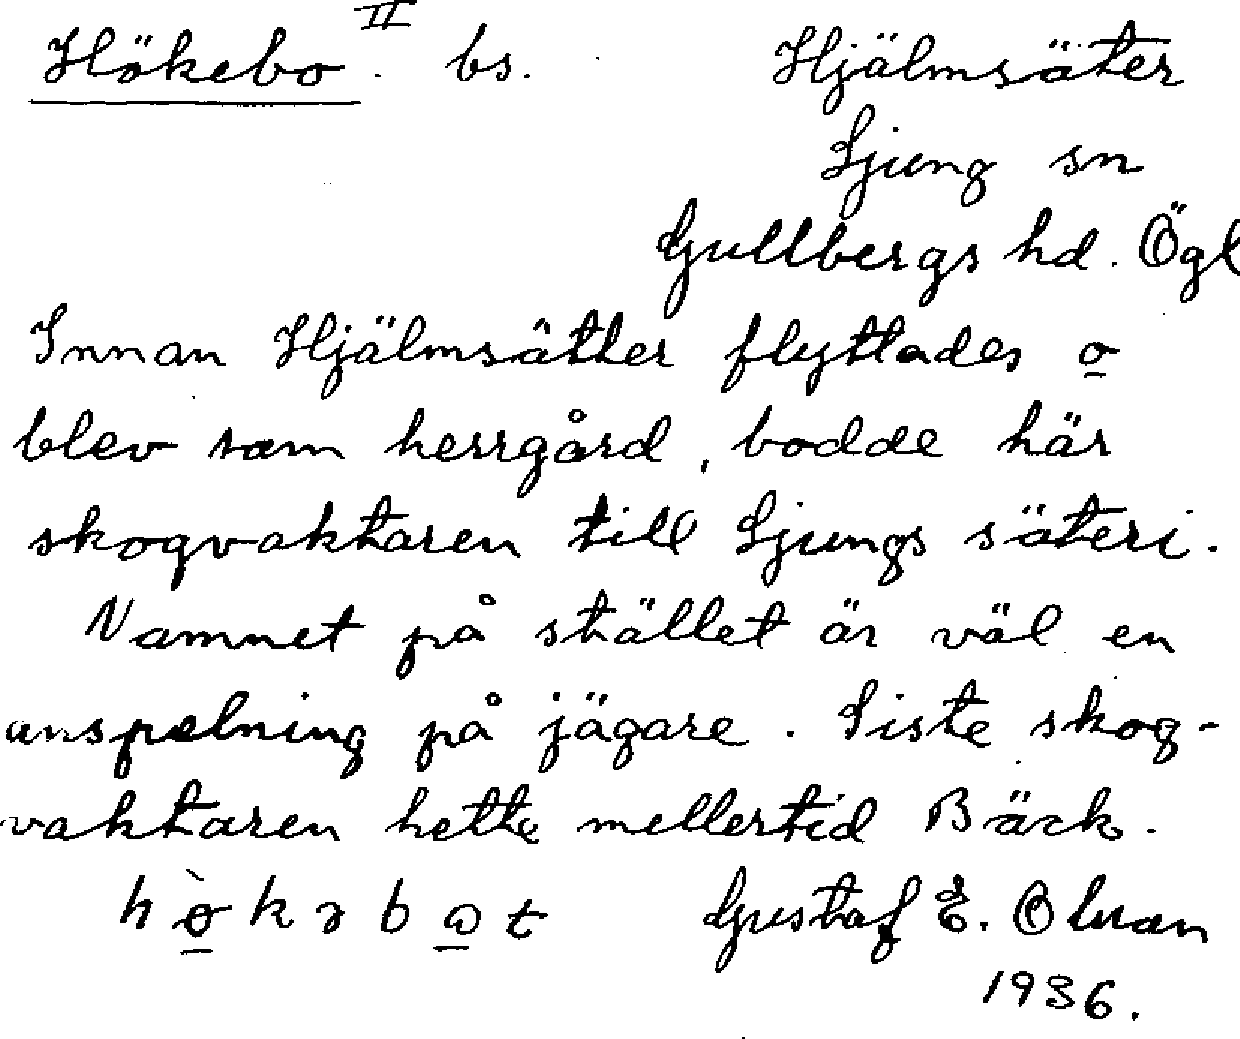 Hökebo II. bs. Hjälmsäter
Ljung sn
Gullbergs hd. Ögl
Innan Hjälmsätter flyttades o
blev som herrgård, bodde här
skogvaktaren till Ljungs säteri.
Namnet på stället är väl en
anspelning på jägare. Siste skog-
vaktaren hette mellertid Bäck.
Gustaf E. Olman
1936.